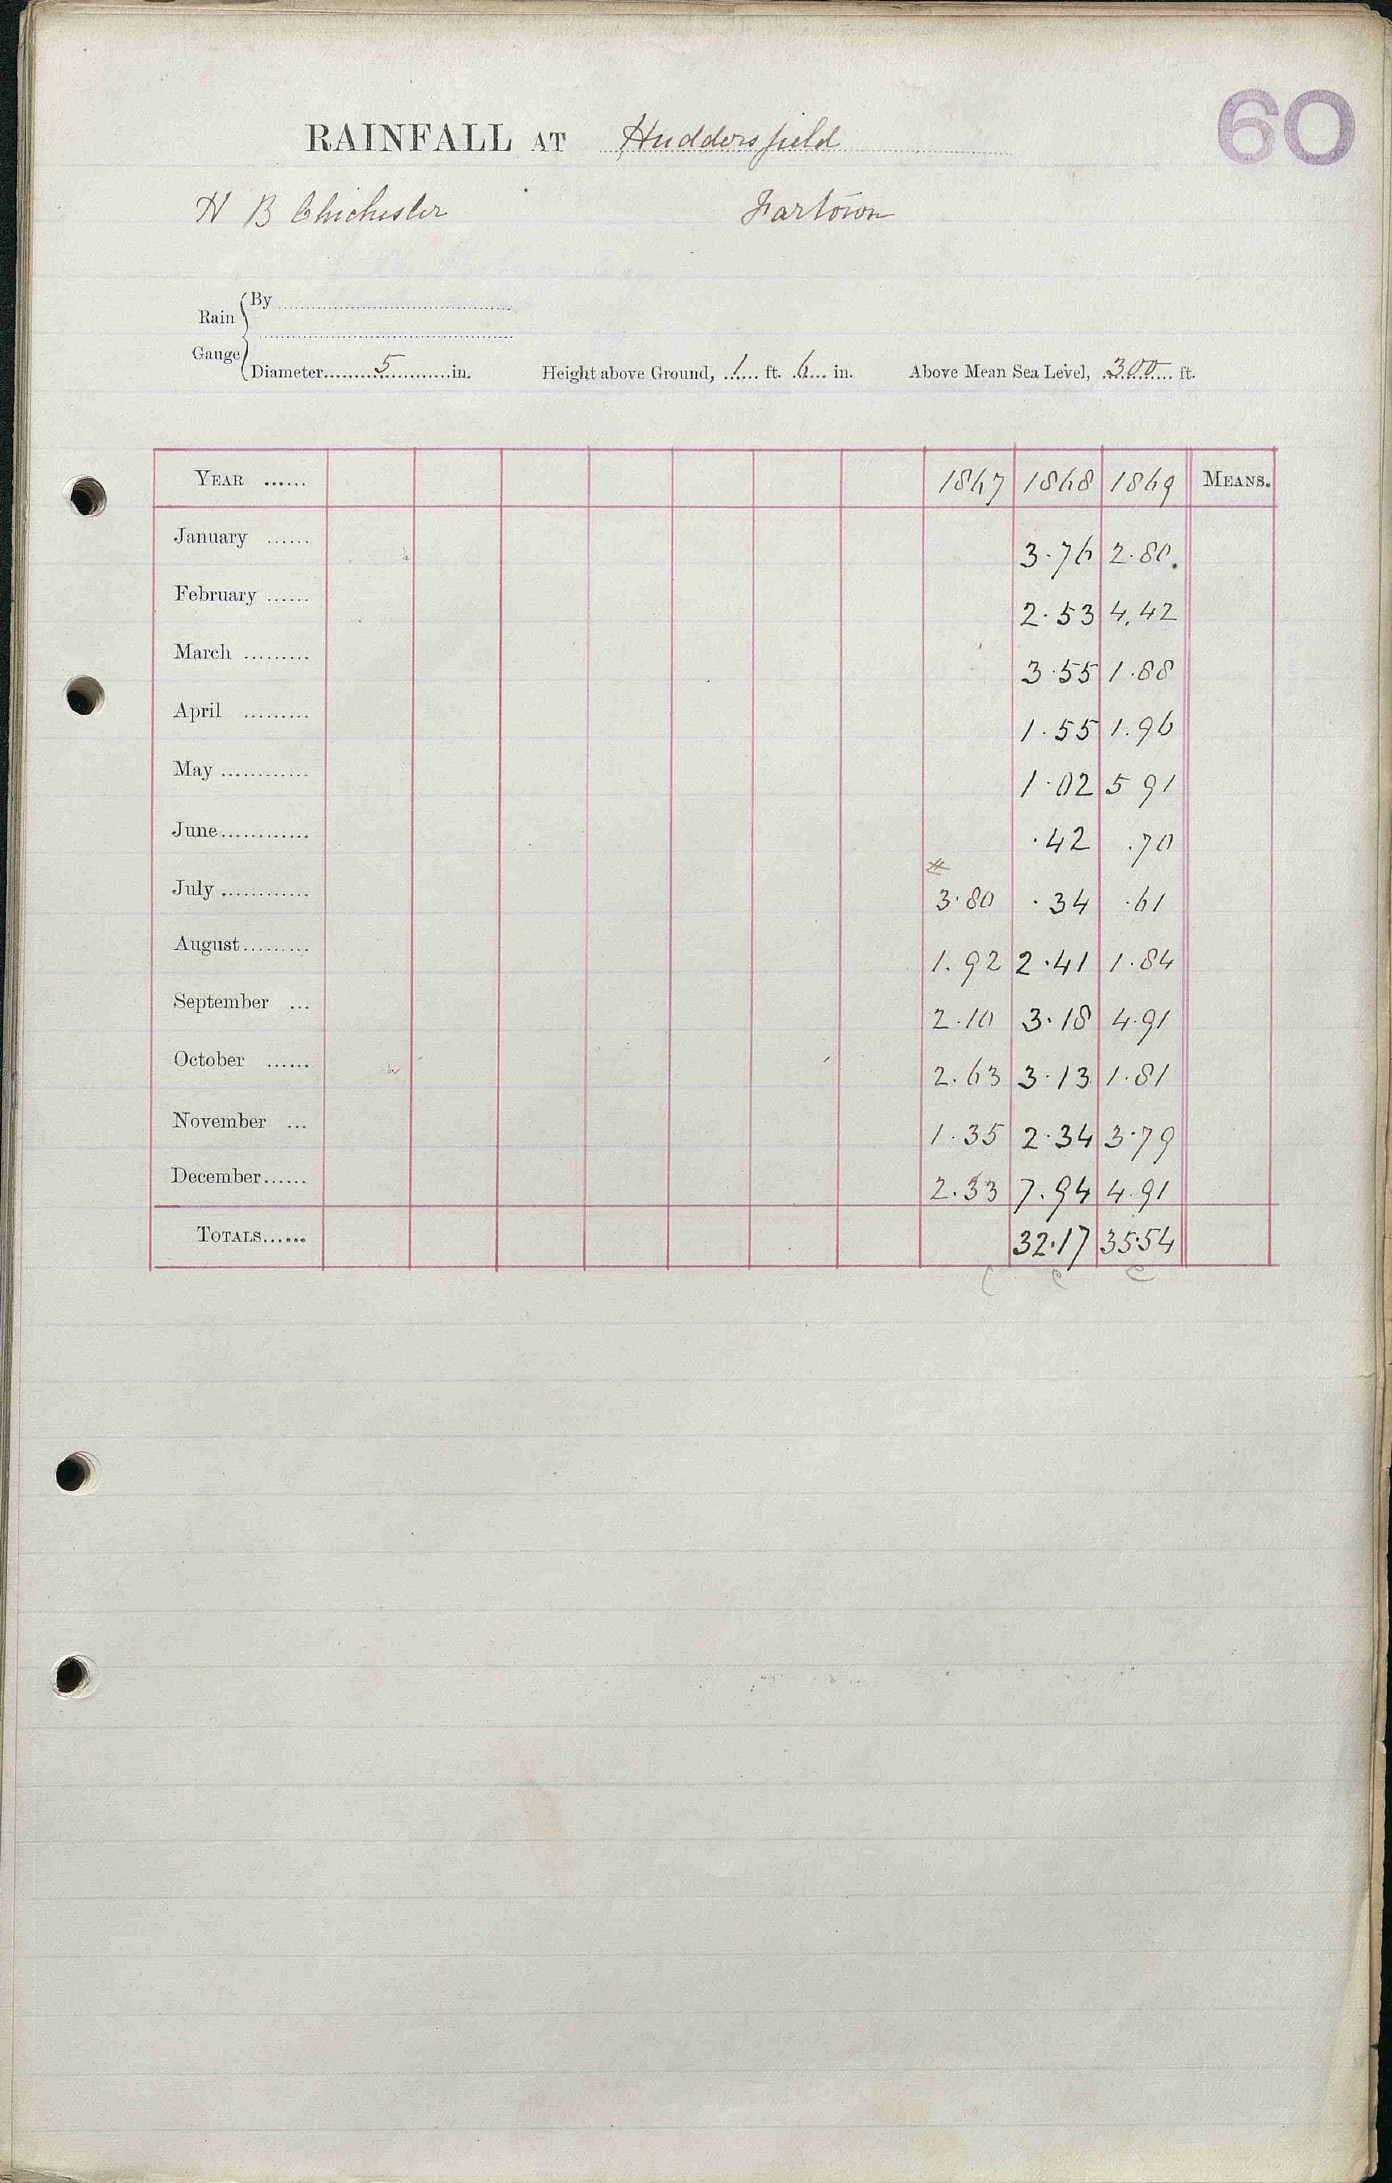 60
RAINFALL AT Huddersfield
H B Chichester Fartown
Rain Gauge
By
Diameter 5 in. Height above Ground, 1 ft. 6 in. Above Mean Sea Level, 300 ft.
YEAR 1867 1868 1869 MEANS.
January 3.76 2.80
February 2.53 4.42
March 3.55 1.88
April 1.55 1.96
May 1.02 5 91
June .42 .70
July 3.80 .34 .61
August 1.92 2.41 1.84
September 2.10 3.18 4.91
October 2.63 3.13 1.81
November 1.35 2.34 3.79
December 2.33 7.94 4.91
TOTALS 32.17 35.54
C C C